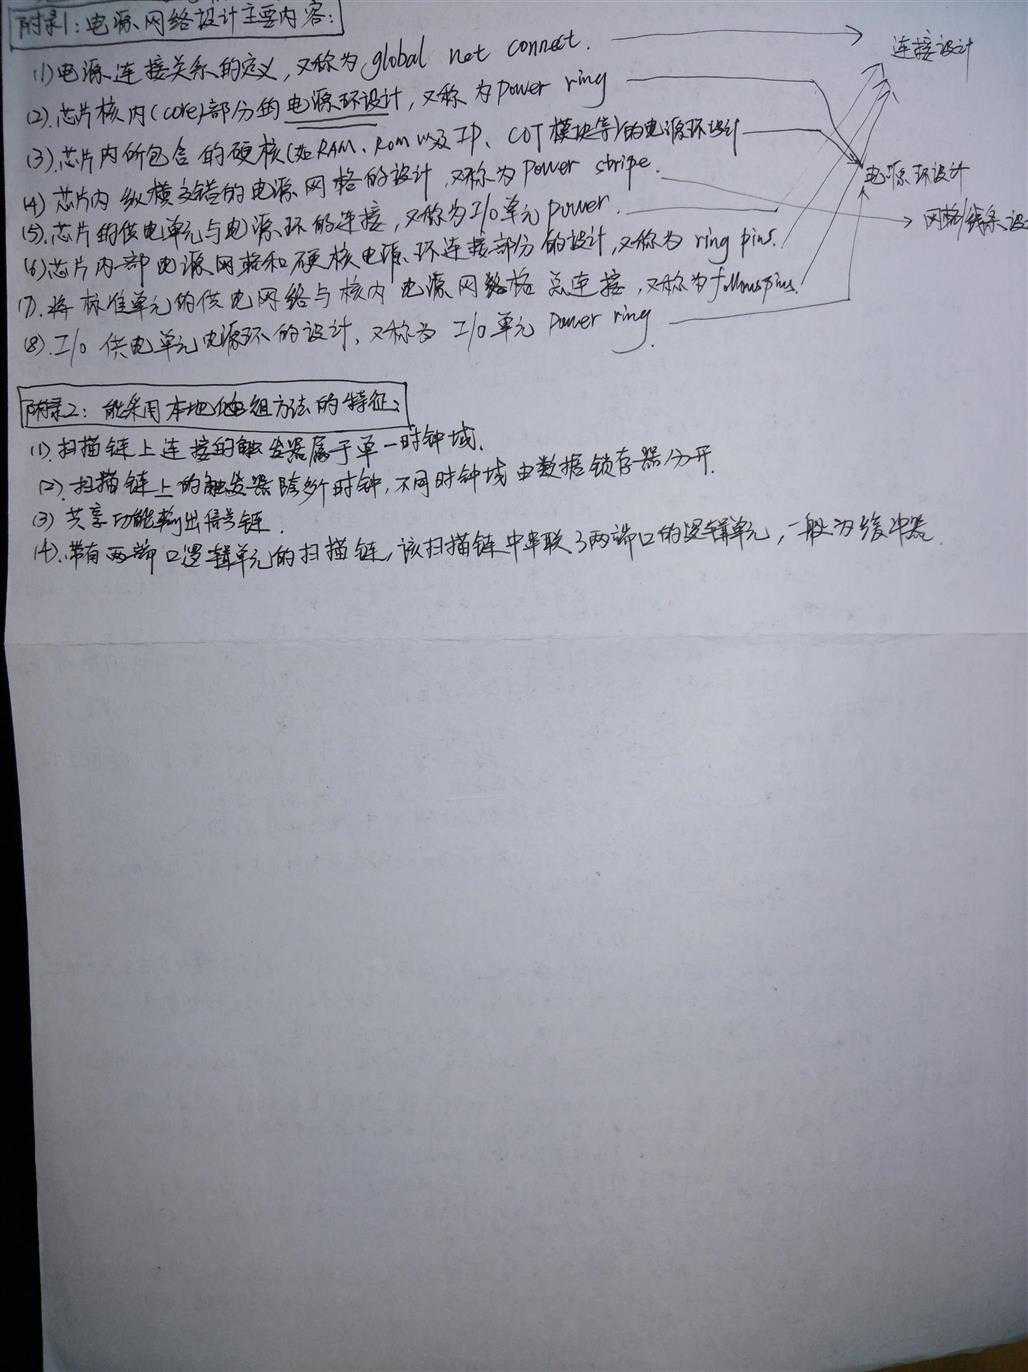 附录1:电源网络设计主要内容:
(1)电源连接关系的定义,又称为global net connect.
连接设计
(2).芯片核内(core)部分的电源环设计,又称为power ring
(3).芯片内所包含的硬核(如RAM、ROM以及IP、COT模块等)的电源环设计
电源环设计
(4)芯片内纵横交错的电源网格的设计,又称为power stripe.
网格/线条设
(5).芯片的供电单元与电源环的连接,又称为I/O单元power.
(6)芯片内部电源网格和硬核电源环连接部分的设计,又称为ring pins.
(7).将标准单元的供电网络与核内电源网络格总连接,又称为followpins.
(8).I/O供电单元电源环的设计,又称为I/O单元power ring.
附录2:能采用本地化重组方法的特征:
(1).扫描链上连接的触发器属于单一时钟域.
(2).扫描链上的触发器除多个时钟,不同时钟域由数据锁存器分开.
(3)共享功能输出信号链.
(4).带有两端口逻辑单元的扫描链,该扫描链中串联了两端口的逻辑单元,一般为缓冲器.